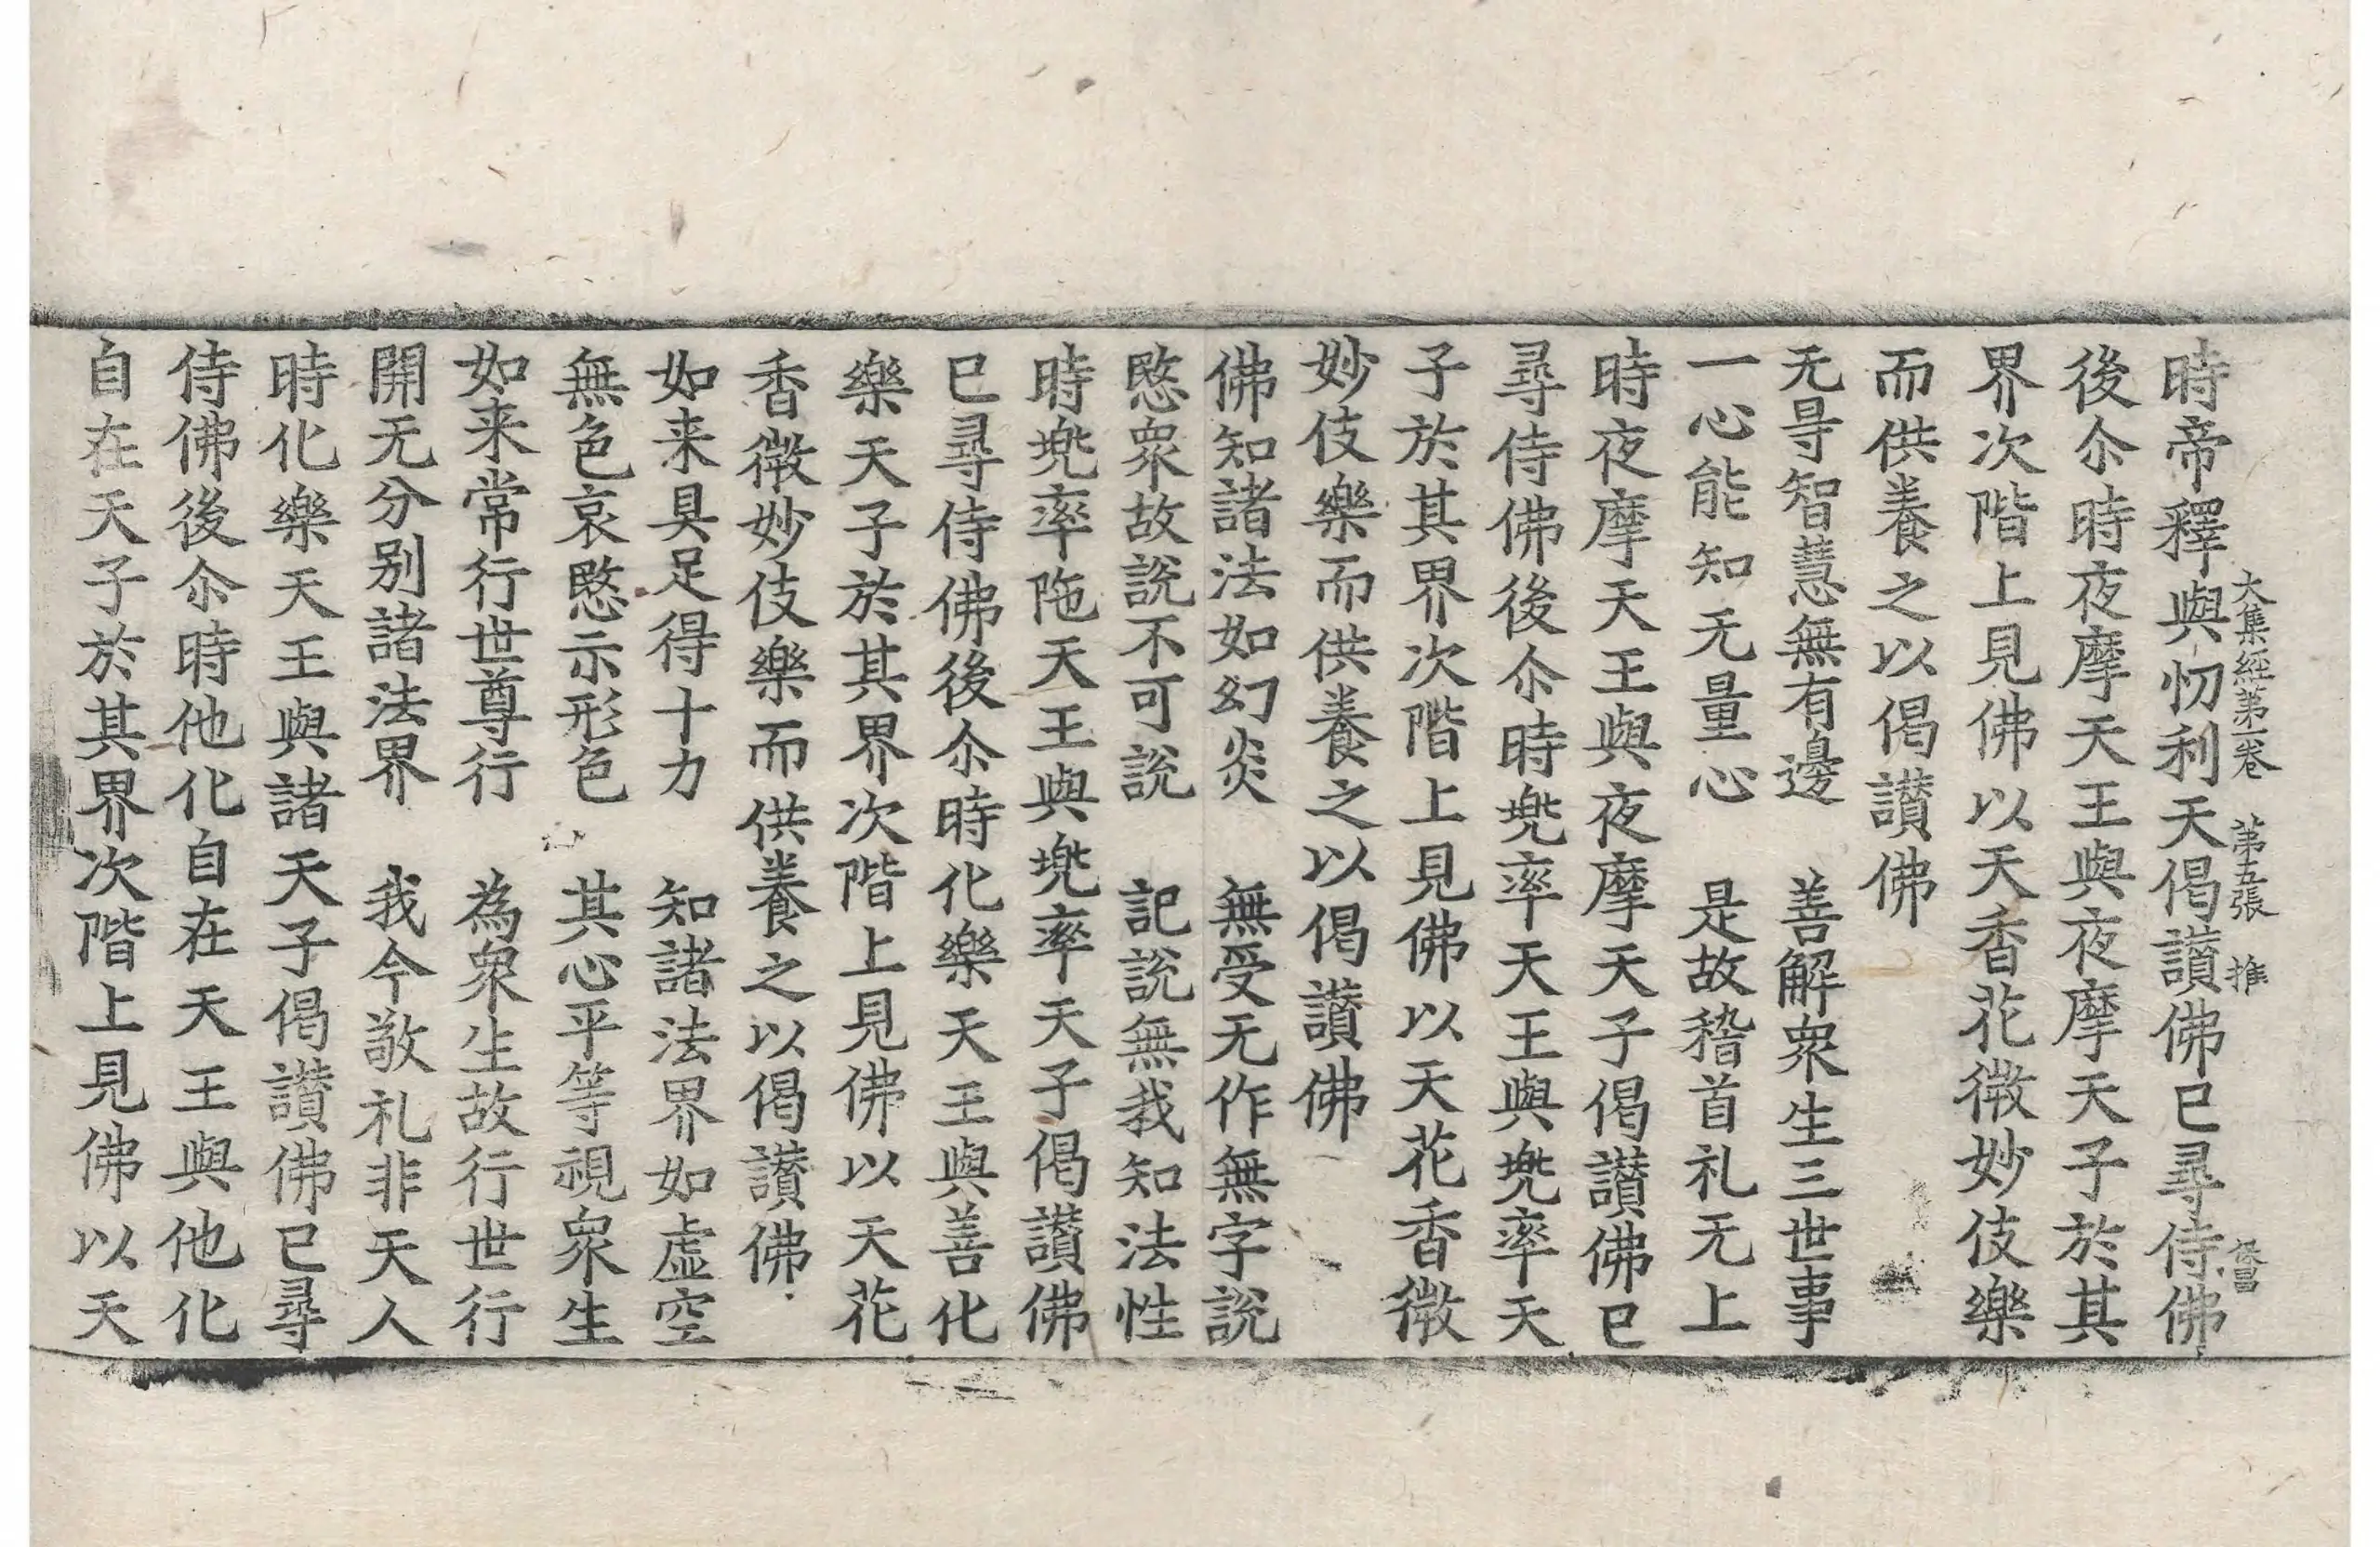 大集經第一卷　第五張　推
時帝釋與忉利天偈讃佛已尋侍佛
後尒時夜摩天王與夜摩天子於其
界次階上見佛以天香花微妙伎樂
而供養之以偈讃佛
无㝵智慧無有邊　善解衆生三世事
一心能知无量心　是故稽首礼无上
時夜摩天王與夜摩天子偈讃佛已
尋侍佛後尒時兠率天王與兠率天
子於其界次階上見佛以天花香微
妙伎樂而供養之以偈讃佛
佛知諸法如幻炎　無受无作無字說
愍衆故說不可說　記說無我知法性
時兠率陁天王與兠率天子偈讃佛
已尋侍佛後尒時化樂天王與善化
樂天子於其界次階上見佛以天花
香微妙伎樂而供養之以偈讃佛
如来具足得十力　知諸法界如虚空
無色哀愍示形色　其心平等視衆生
如来常行世尊行　為衆生故行世行
開无分别諸法界　我今敬礼非天人
時化樂天王與諸天子偈讃佛已尋
侍佛後尒時他化自在天王與他化
自在天子於其界次階上見佛以天